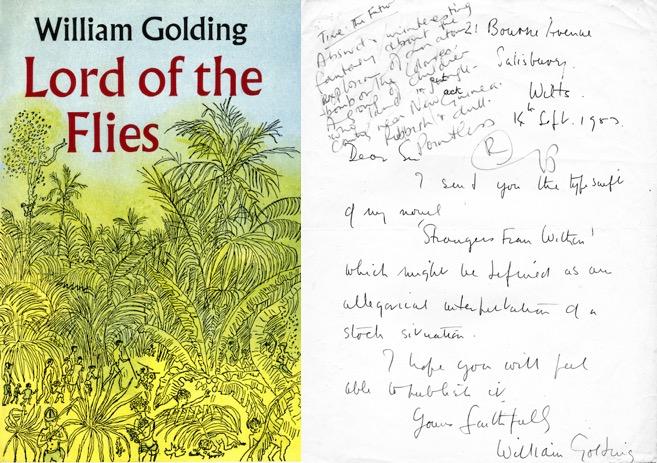 William Golding
Lord of the
Flies
Time: The Future
Absurd & uninteresting
fantasy about the
explosion of an atom
bomb on the Colonies.
A group of children
who land in jungle-
country near New Guinea.
Rubbish & dull.
Pointless
R
21 Bourne Avenue
Salisbury.
Wilts.
14th Sept. 1953.
Dear Sir
I send you the typescript
of my novel
'Strangers From Within'
which might be defined as an
allegorical interpretation of a
stock situation.
I hope you will feel
able to publish it.
Yours faithfully
William Golding